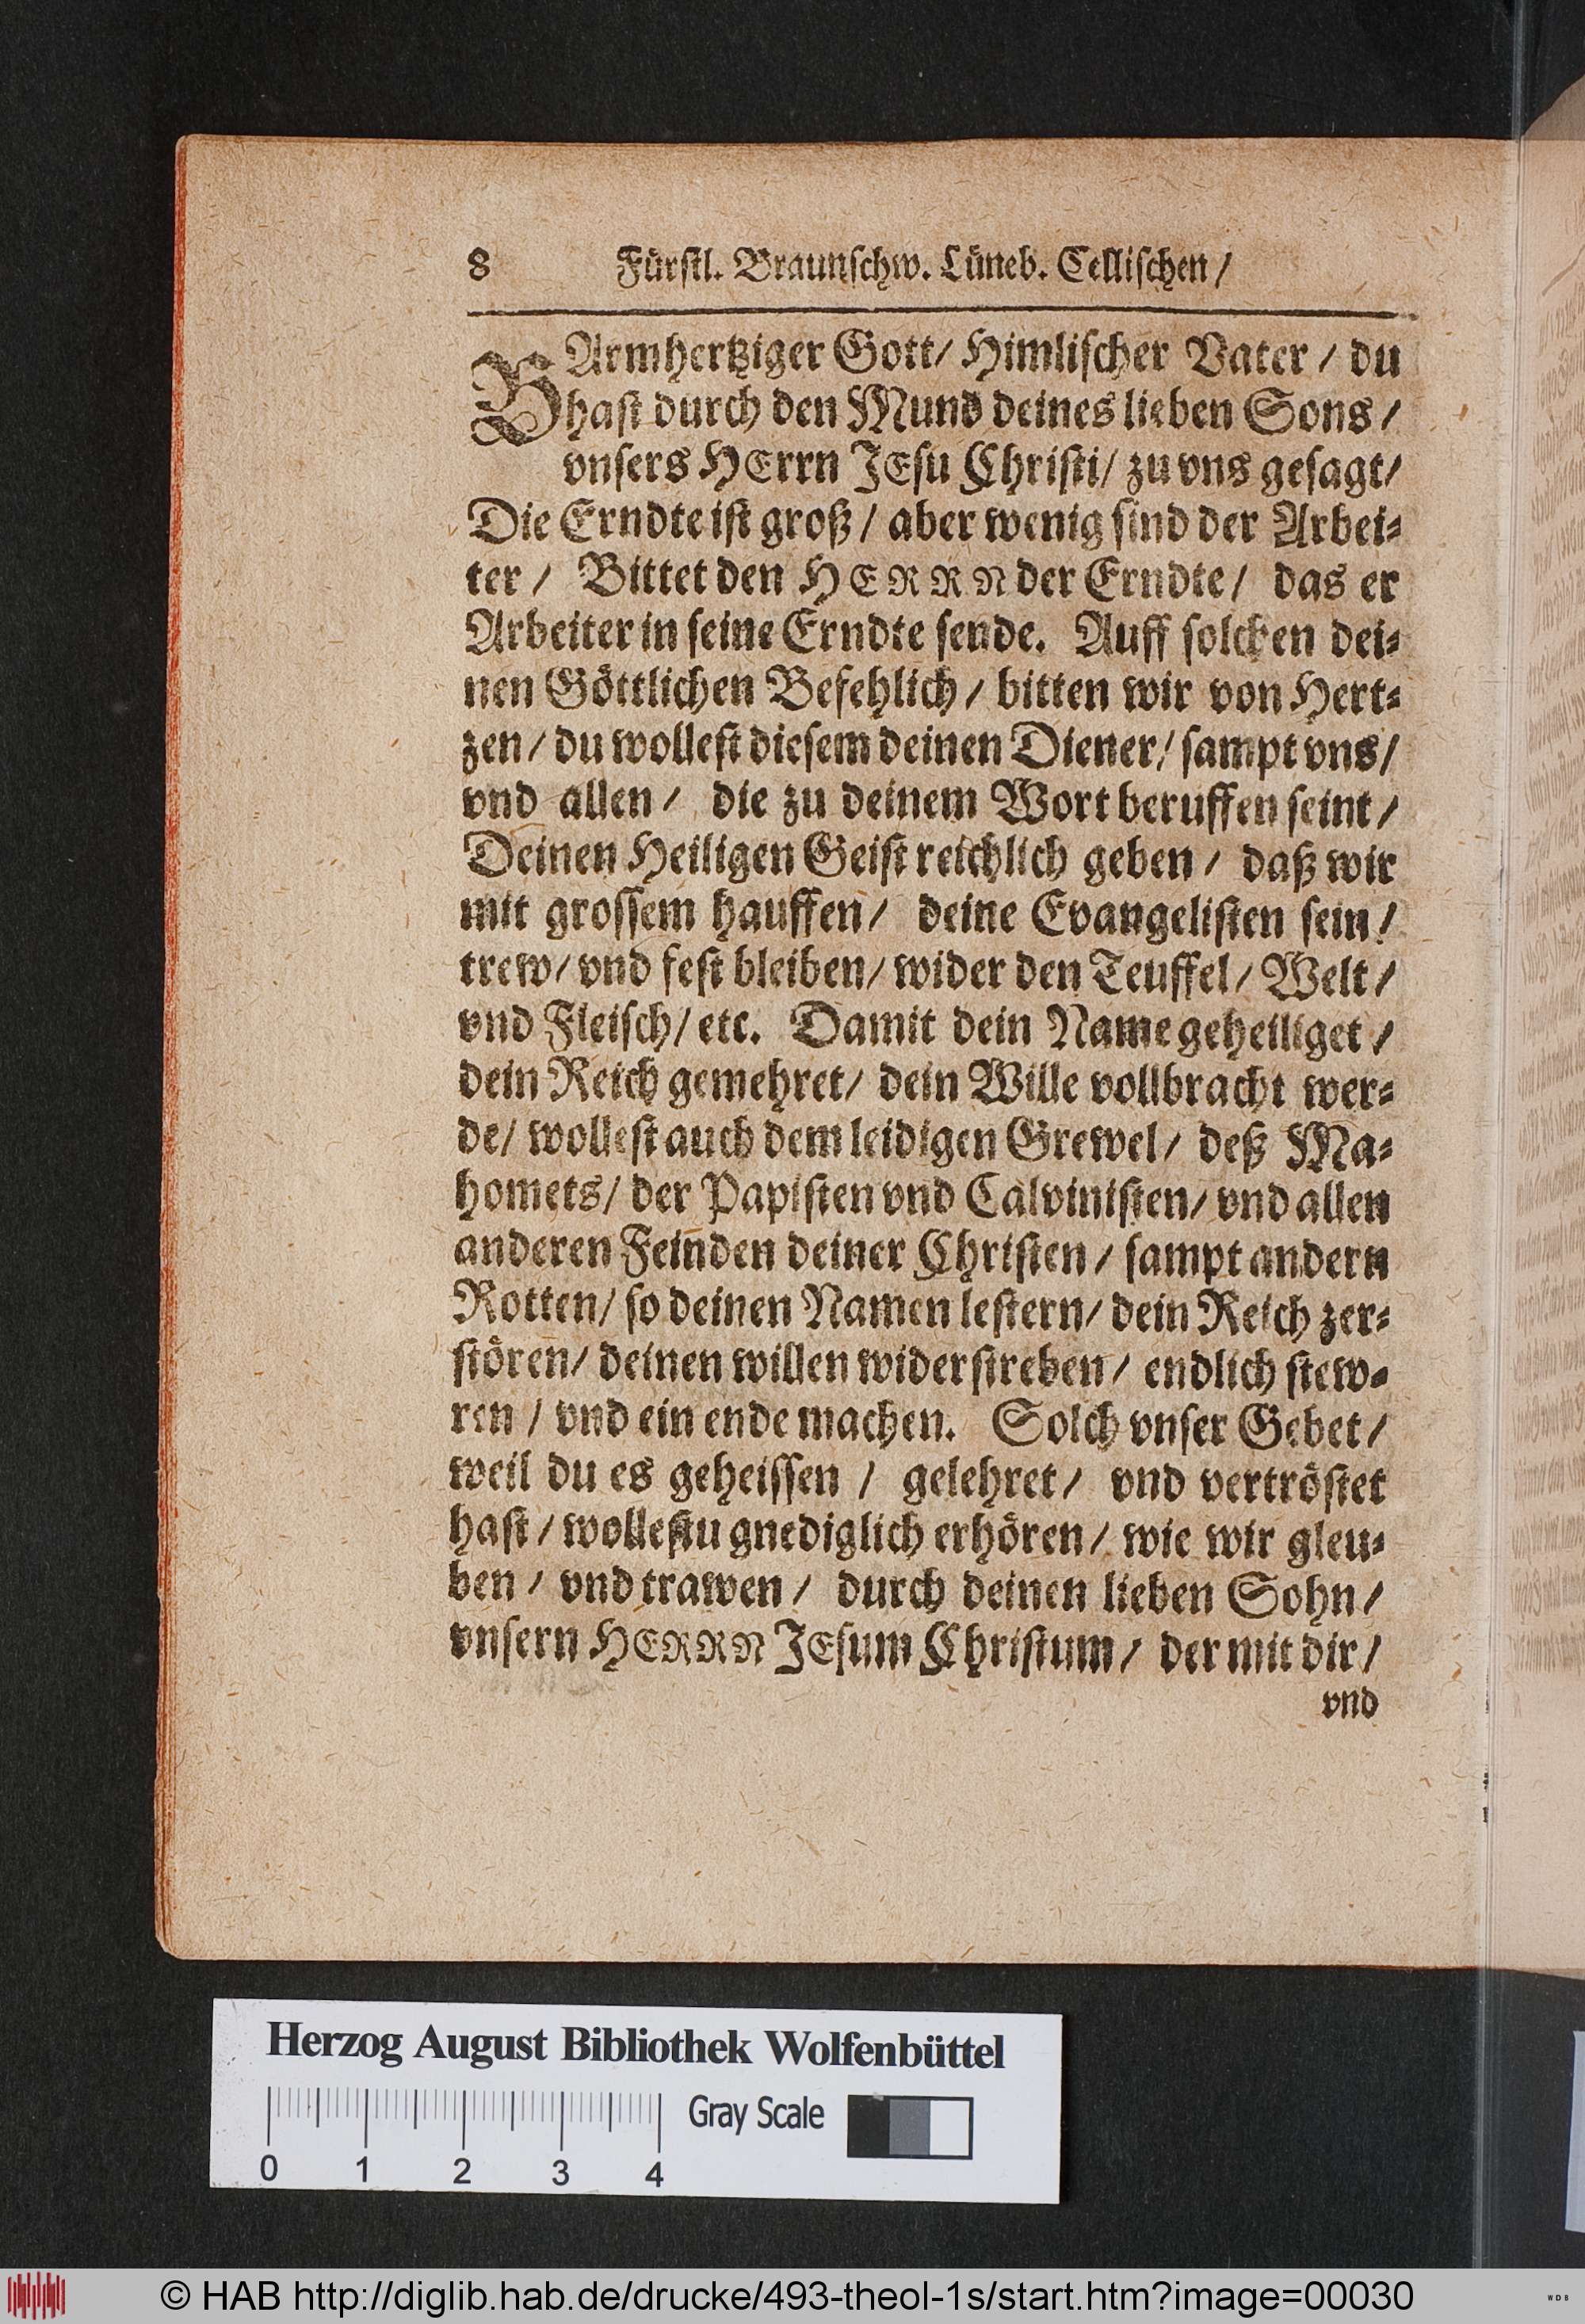 8 Fürstl. Braunschw. Lüneb. Cellischen /
BArmhertziger Gott / Himlischer Vater / du
hast durch den Mund deines lieben Sons /
vnsers HErrn JEsu Christi / zu vns gesagt /
Die Erndte ist groß / aber wenig sind der Arbei-
ter / Bittet den HERRN der Erndte / das er
Arbeiter in seine Erndte sende. Auff solchen dei-
nen Göttlichen Befehlich / bitten wir von Hert-
zen / du wollest diesem deinen Diener / sampt vns /
vnd allen / die zu deinem Wort beruffen seint /
Deinen Heiligen Geist reichlich geben / daß wir
mit grossem hauffen / deine Evangelisten sein /
trew / vnd fest bleiben / wider den Teuffel / Welt /
vnd Fleisch / etc. Damit dein Name geheiliget /
dein Reich gemehret / dein Wille vollbracht wer-
de / wollest auch dem leidigen Grewel / deß Ma-
homets / der Papisten vnd Calvinisten / vnd allen
anderen Feinden deiner Christen / sampt andern
Rotten / so deinen Namen lestern / dein Reich zer-
stören / deinen willen widerstreben / endlich stew-
ren / vnd ein ende machen. Solch vnser Gebet /
weil du es geheissen / gelehret / vnd vertröstet
hast / wollestu gnediglich erhören / wie wir gleu-
ben / vnd trawen / durch deinen lieben Sohn /
vnsern HERRN JEsum Christum / der mit dir /
vnd
Herzog August Bibliothek Wolfenbüttel
Gray Scale
0 1 2 3 4
© HAB http://diglib.hab.de/drucke/493-theol-1s/start.htm?image=00030
WDB